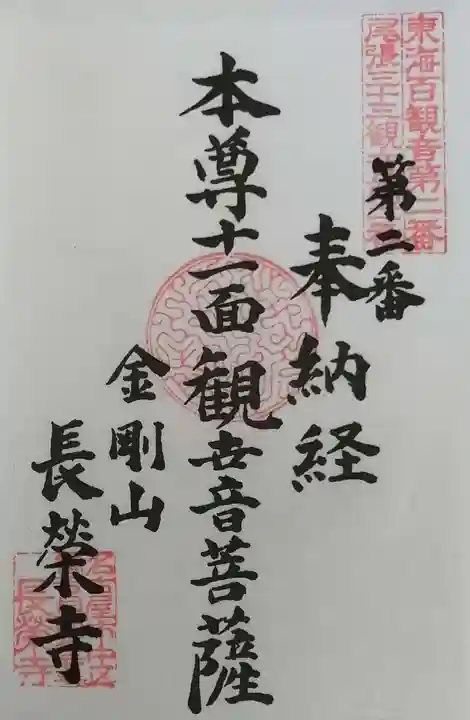 東海百観音第二番
尾張三十三観音第二番
第二番
奉納経
本尊十一面観世音菩薩
金剛山
長榮寺
長榮寺